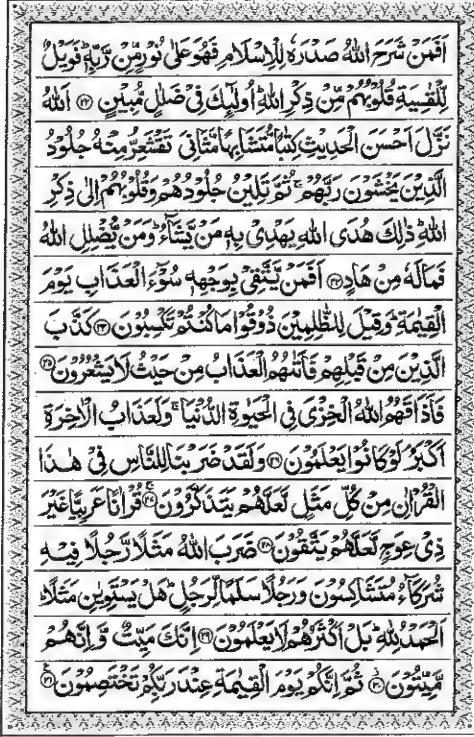 اَفَمَنْ شَرَحَ اللّٰهُ صَدْرَهٗ لِلْاِسْلَامِ فَهُوَ عَلٰى نُوْرٍ مِّنْ رَّبِّهٖ ؕ فَوَيْلٌ
لِّلْقٰسِيَةِ قُلُوْبُهُمْ مِّنْ ذِكْرِ اللّٰهِ ؕ اُولٰٓئِكَ فِيْ ضَلٰلٍ مُّبِيْنٍ ﴿۲۲﴾ اَللّٰهُ
نَزَّلَ اَحْسَنَ الْحَدِيْثِ كِتٰبًا مُّتَشَابِهًا مَّثَانِيَ تَقْشَعِرُّ مِنْهُ جُلُوْدُ
الَّذِيْنَ يَخْشَوْنَ رَبَّهُمْ ۚ ثُمَّ تَلِيْنُ جُلُوْدُهُمْ وَقُلُوْبُهُمْ اِلٰى ذِكْرِ
اللّٰهِ ؕ ذٰلِكَ هُدَى اللّٰهِ يَهْدِيْ بِهٖ مَنْ يَّشَآءُ ؕ وَمَنْ يُّضْلِلِ اللّٰهُ
فَمَا لَهٗ مِنْ هَادٍ ﴿۲۳﴾ اَفَمَنْ يَّتَّقِيْ بِوَجْهِهٖ سُوْٓءَ الْعَذَابِ يَوْمَ
الْقِيٰمَةِ ؕ وَقِيْلَ لِلظّٰلِمِيْنَ ذُوْقُوْا مَا كُنْتُمْ تَكْسِبُوْنَ ﴿۲۴﴾ كَذَّبَ
الَّذِيْنَ مِنْ قَبْلِهِمْ فَاَتٰىهُمُ الْعَذَابُ مِنْ حَيْثُ لَا يَشْعُرُوْنَ ﴿۲۵﴾
فَاَذَاقَهُمُ اللّٰهُ الْخِزْيَ فِي الْحَيٰوةِ الدُّنْيَا ۚ وَلَعَذَابُ الْاٰخِرَةِ
اَكْبَرُ ۘ لَوْ كَانُوْا يَعْلَمُوْنَ ﴿۲۶﴾ وَلَقَدْ ضَرَبْنَا لِلنَّاسِ فِيْ هٰذَا
الْقُرْاٰنِ مِنْ كُلِّ مَثَلٍ لَّعَلَّهُمْ يَتَذَكَّرُوْنَ ﴿۲۷﴾ قُرْاٰنًا عَرَبِيًّا غَيْرَ
ذِيْ عِوَجٍ لَّعَلَّهُمْ يَتَّقُوْنَ ﴿۲۸﴾ ضَرَبَ اللّٰهُ مَثَلًا رَّجُلًا فِيْهِ
شُرَكَآءُ مُتَشَاكِسُوْنَ وَرَجُلًا سَلَمًا لِّرَجُلٍ ؕ هَلْ يَسْتَوِيٰنِ مَثَلًا ؕ
اَلْحَمْدُ لِلّٰهِ ؕ بَلْ اَكْثَرُهُمْ لَا يَعْلَمُوْنَ ﴿۲۹﴾ اِنَّكَ مَيِّتٌ وَّاِنَّهُمْ
مَّيِّتُوْنَ ﴿۳۰﴾ ثُمَّ اِنَّكُمْ يَوْمَ الْقِيٰمَةِ عِنْدَ رَبِّكُمْ تَخْتَصِمُوْنَ ﴿۳۱﴾